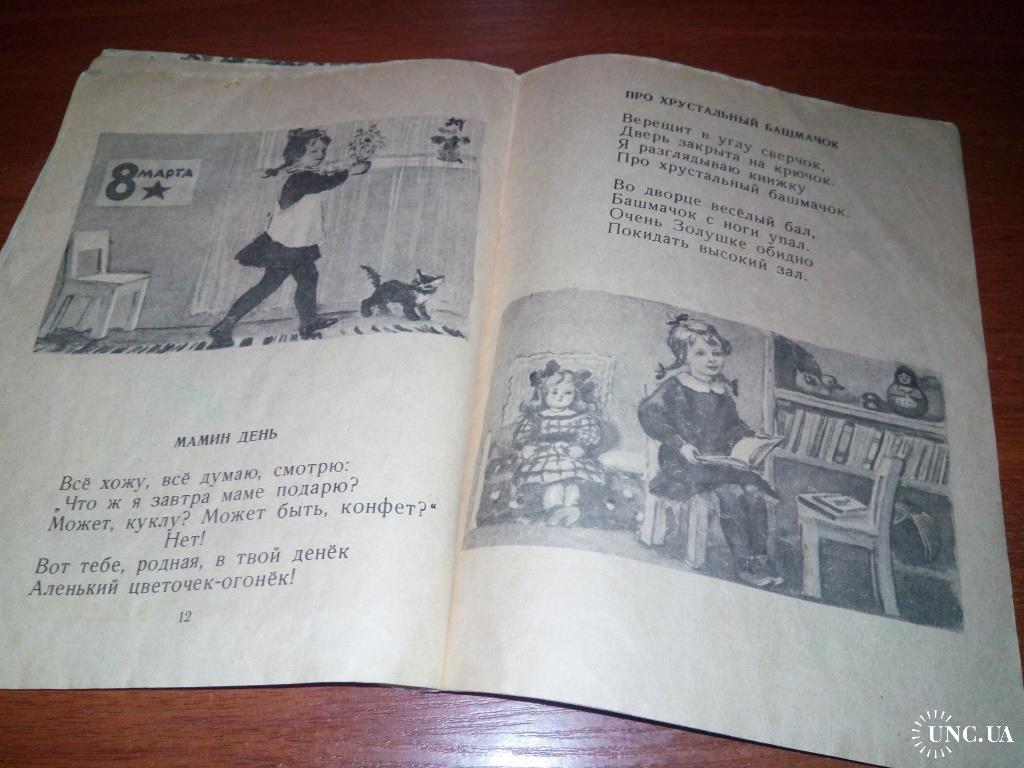 8 МАРТА
МАМИН ДЕНЬ
Всё хожу, всё думаю, смотрю:
„Что ж я завтра маме подарю?
Может, куклу? Может быть, конфет?“
Нет!
Вот тебе, родная, в твой денёк
Аленький цветочек-огонёк!
12
ПРО ХРУСТАЛЬНЫЙ БАШМАЧОК
Верещит в углу сверчок,
Дверь закрыта на крючок.
Я разглядываю книжку
Про хрустальный башмачок.
Во дворце весёлый бал,
Башмачок с ноги упал.
Очень Золушке обидно
Покидать высокий зал.
UNC.UA